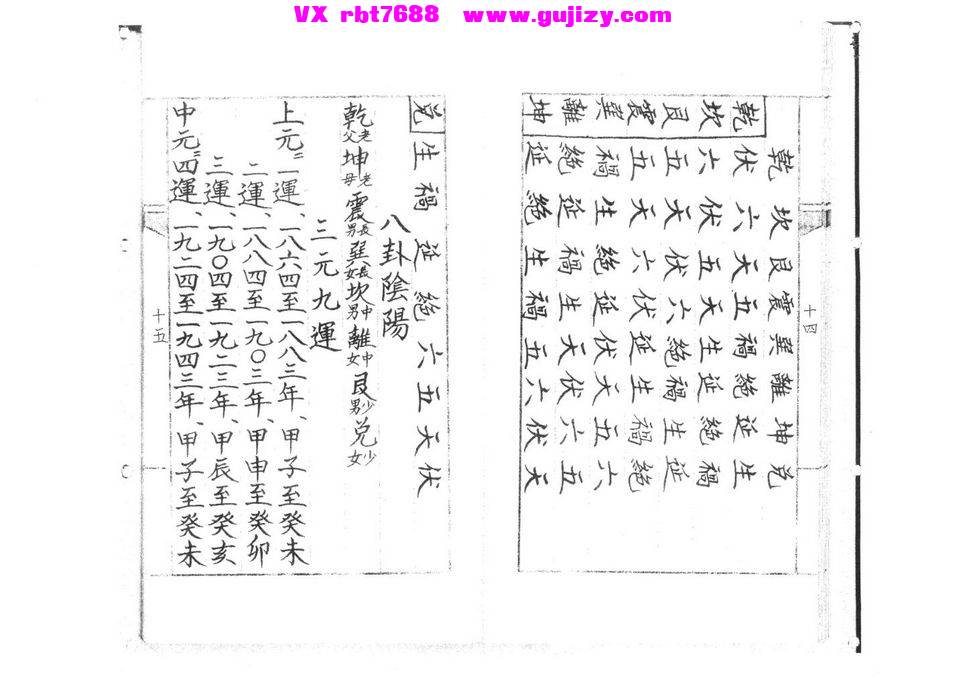 VX rbt7688 www.gujizy.com
乾坎艮震巽離坤兑
乾伏六天五禍絕延生
坎六伏五天生延絕禍
艮五天伏六絕禍生延
震五天六伏延生禍絕
巽禍生絕延伏天五六
離絕延禍生天伏六五
坤延絕生禍五六伏天
十四
兑生禍延絕六五天伏
八卦陰陽
乾老父坤老母震長男巽長女坎中男離中女艮少男兑少女
三元九運
上元=一運、一八六四至一八八三年、甲子至癸未
二運、一八八四至一九〇三年、甲申至癸卯
三運、一九〇四至一九二三年、甲辰至癸亥
中元=四運、一九二四至一九四三年、甲子至癸未
十五